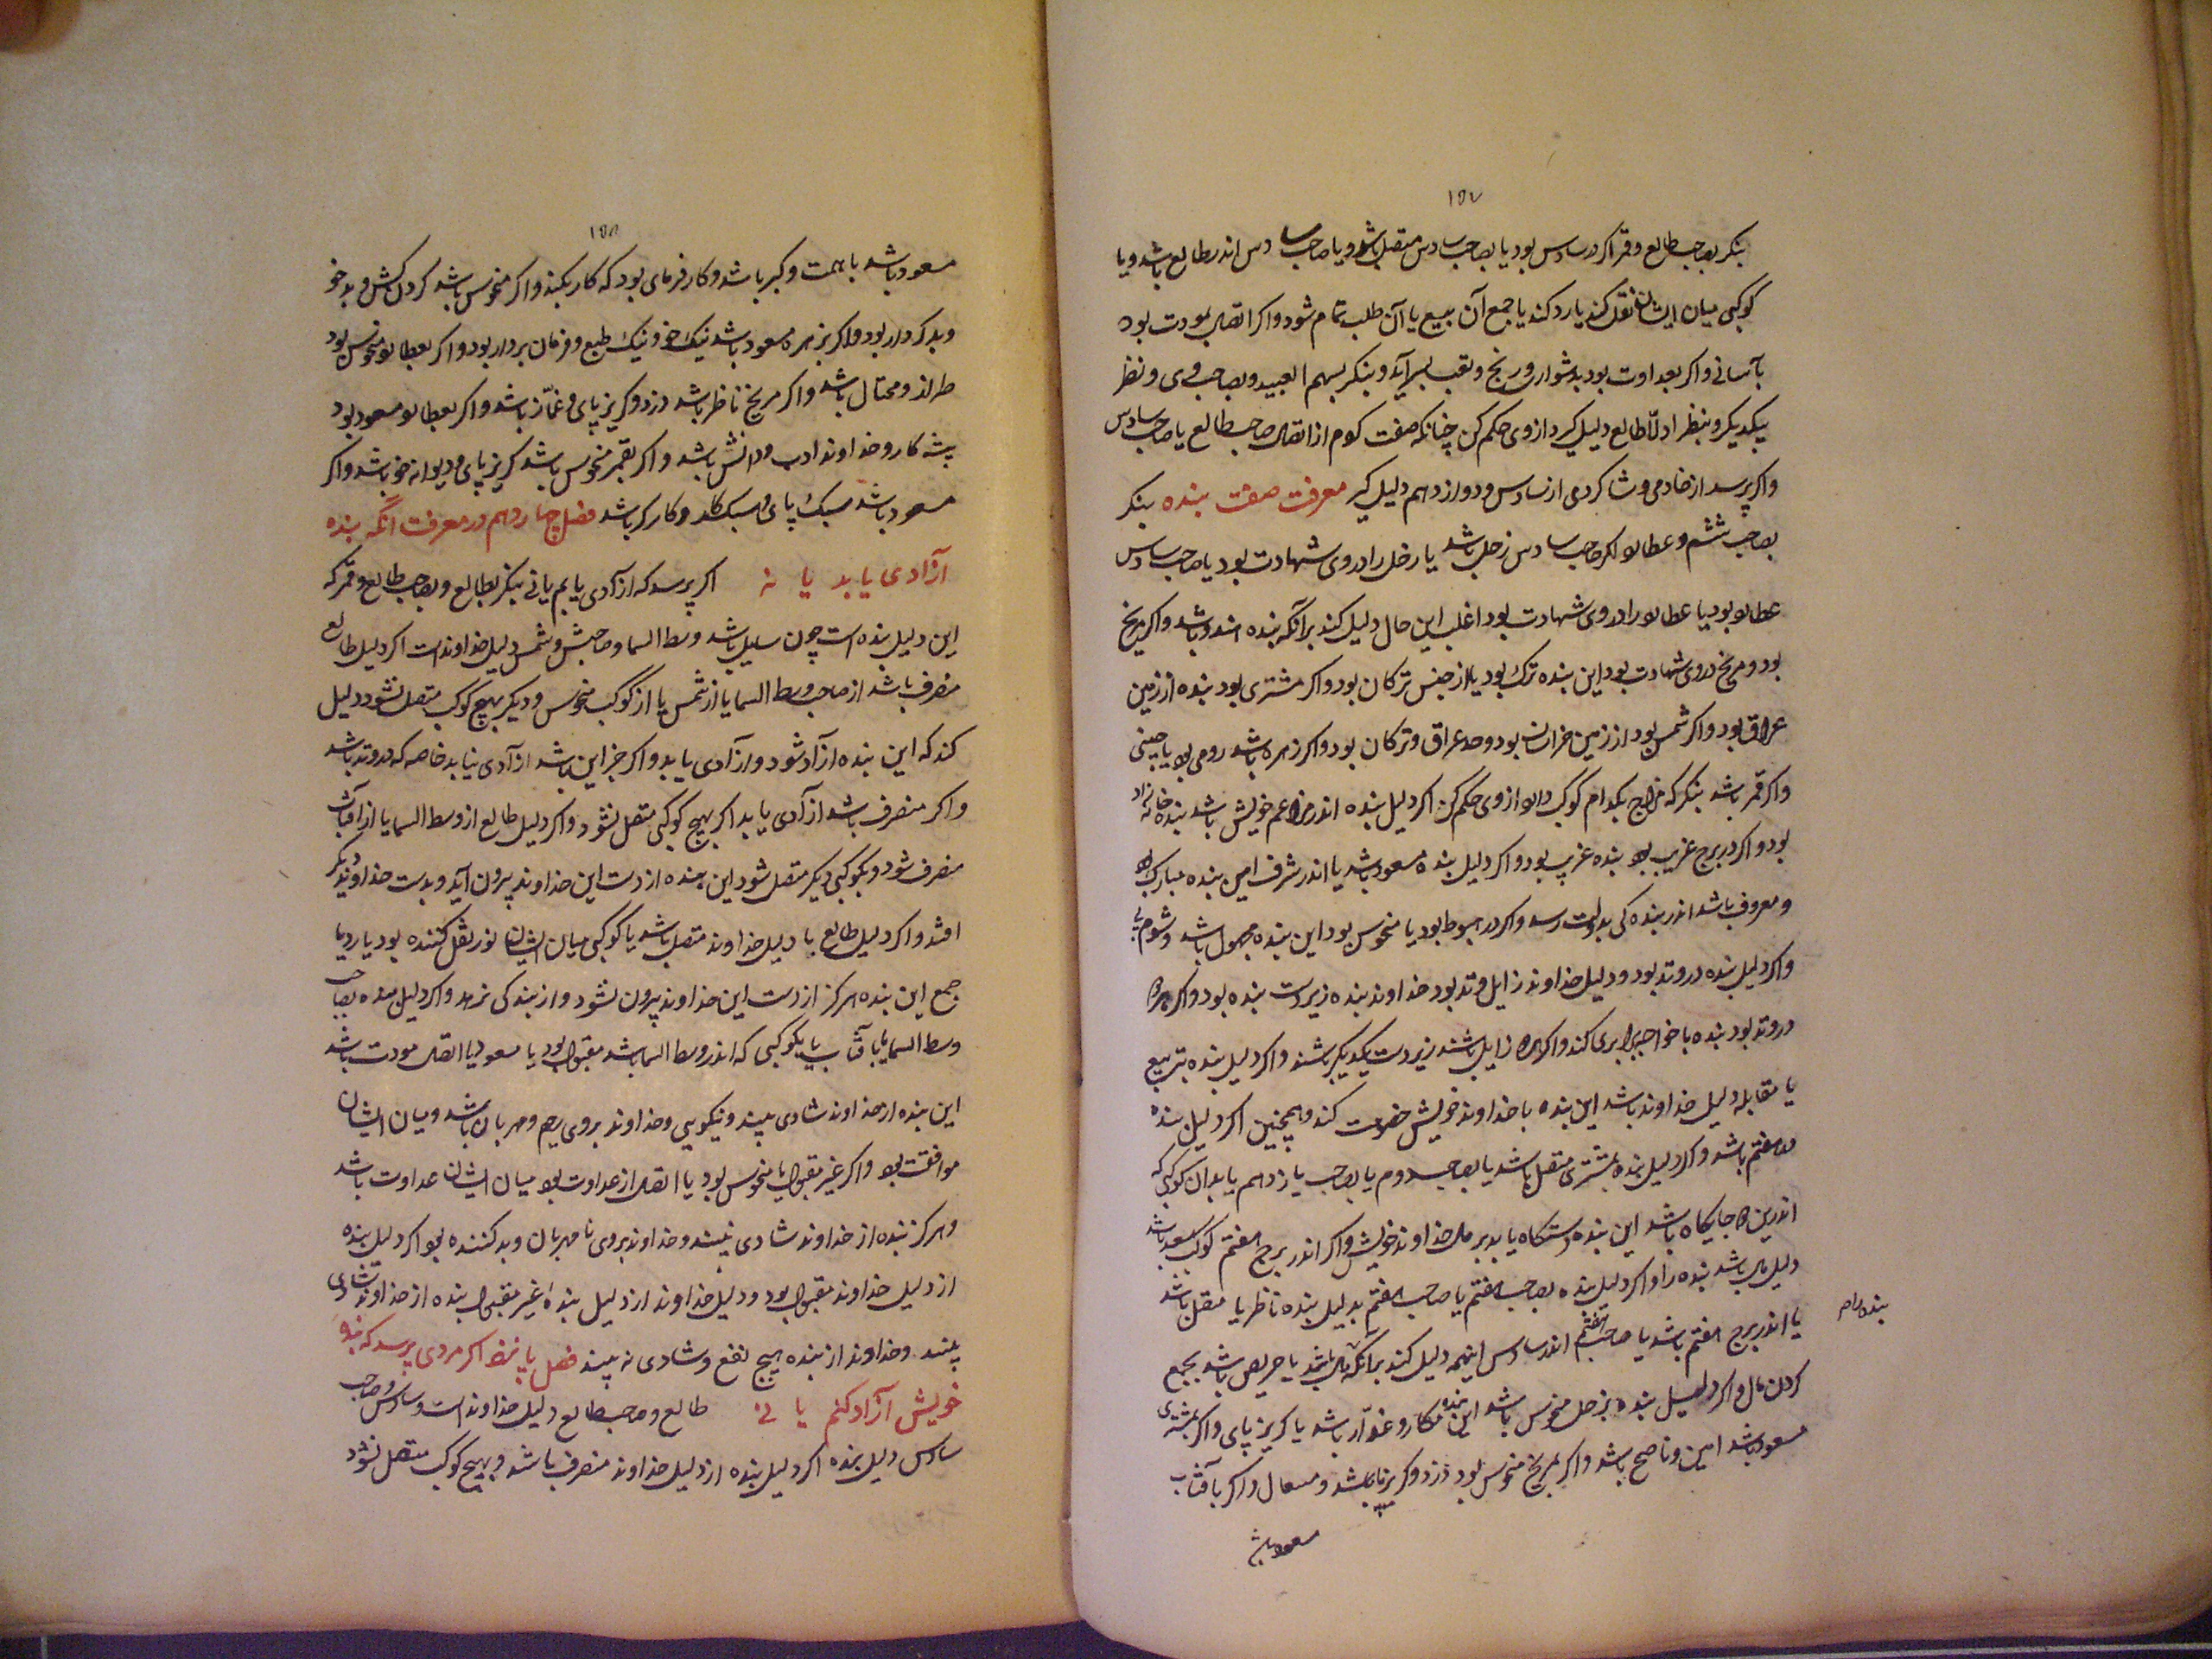 ۱۵۷
بنکر بصاحب طالع و قمر اکر در سادس بود یا بصاحب سادس متصل باشد و یا صاحب سادس اندر طالع باشد و یا
کوکبی میان ایشان نقل کند یا رد کند یا جمع آن بیع یا آن طلب تمام شود و اکر اتصال بمودت بود
بآسانی و اکر بعداوت بود بدشواری و رنج و تعب برآید و بنکر بسهم العبید و بصاحب وی و نظر
یکدیکر و بنظر ادلّا طالع دلیل کیر و از وی حکم کن چنانکه صفت کردم از اتصال صاحب طالع با صاحب سادس
و اکر پرسد از خادمی و شاکردی از سادس و دوازدهم دلیل کیر معرفت صفت بنده بنکر
بصاحب ششم و عطارد اکر صاحب سادس زحل باشد یا زحل را در وی شهادت بود یا صاحب سادس
عطارد بود یا عطارد را در وی شهادت بود اغلب این حال دلیل کند برآنکه بنده هندو باشد و اکر مریخ
بود و مریخ در وی شهادت بود این بنده ترک بود یا از جنس ترکان بود و اکر مشتری بود بنده از زمین
عراق بود و اکر شمس بود از زمین خراسان بود و حد عراق و ترکان بود و اکر زهره باشد رومی بود یا چینی
و اکر قمر باشد بنکر که مزاج بکدام کوکب دارد از وی حکم کن اکر دلیل بنده اندر مزاعم خویش باشد بنده خانه زاد
بود و اکر در برج غریب بود بنده غریب بود و اکر دلیل بنده مسعود باشد یا اندر شرف این بنده مبارک بود
و معروف باشد اندر بنده کی بدولت رسد و اکر در هبوط بود یا منحوس بود این بنده مجهول باشد و شوم پی
و اکر دلیل بنده در وتد بود و دلیل خداوند زایل وتد بود خداوند بنده زیردست بنده بود و اکر هردو
در وتد بود بنده با خواجه برابری کند و اکر هردو زایل باشند زیردست یکدیکر باشند و اکر دلیل بنده بتربیع
یا مقابله دلیل خداوند باشد این بنده با خداوند خویش خصومت کند و همچنین اکر دلیل بنده
در هفتم باشد و اکر دلیل بنده بمشتری متصل باشد یا بصاحب دوم یا بصاحب یازدهم یا بدان کوکبی که
اندرین دو جایکاه باشد این بنده دستکاه یابد بر مال خداوند خویش و اکر اندر برج هفتم کوکب سعد باشد
دلیل مال باشد بنده را و اکر دلیل بنده بصاحب هفتم یا صاحب هفتم بدلیل بنده ناظر یا متصل باشد
یا اندر برج هفتم باشد یا صاحب هفتم اندر سادس اینهمه دلیل کند برآنکه بنده را مال باشد یا حریص باشد بجمع
کردن مال و اکر دلیل بنده بزحل منحوس باشد این بنده مکار و غدّار باشد یا کریزپای و اکر بمشتری
مسعود باشد امین و ناصح باشد و اکر بمریخ منحوس بود دزد و کریزپا باشد و و اکر بآفتاب
مسعود باشد
۱۵۸
مسعود باشد با همت و کبر باشد و کارفرمای بود که کار نکند و اکر منحوس باشد کردن کش و بدخو
و بدکردار بود و اکر بزهره مسعود باشد نیک خو و نیک طبع و فرمان بردار بود و اکر بعطارد منحوس بود
طرار و محتال باشد و اکر مریخ ناظر باشد دزد و کریزپای و غمّاز باشد و اکر بعطارد مسعود بود
پیشه کار و خداوند ادب و دانش باشد و اکر بقمر منحوس باشد کریزپای و دیوانه خو باشد و اکر
مسعود باشد سبک پای و سبک کار و کارکر باشد فصل چهاردهم در معرفت آنکه بنده
آزادی یابد یا نه اکر پرسد که آزادی یابم یا نی بنکر بطالع و بصاحب طالع و قمر که
این دلیل بنده است چون سلیل باشد وسط السما و صاحبش و شمس دلیل خداوند است اکر دلیل طالع
منصرف باشد از صاحب وسط السما یا از شمس یا از کوکب منحوس و دیکر بهیچ کوکب متصل نشود دلیل
کند که این بنده آزاد شود و آزادی یابد و اکر جز این باشد آزادی نیابد خاصه که در وتد باشد
و اکر منصرف باشد آزادی یابد اکر بهیچ کوکبی متصل نشود و اکر دلیل طالع از وسط السما یا از آفتاب
منصرف شود و بکوکبی دیکر متصل شود این بنده از دست این خداوند بیرون آید و بدست خداوند دیکر
افتد و اکر دلیل طالع با دلیل خداوند متصل باشد یا کوکبی میان ایشان نور نقل کننده بود یا رد یا
جمع این بنده هرکز از دست این خداوند بیرون نشود و از بندکی نرهد و اکر دلیل بنده بصاحب
وسط السما یا بآفتاب یا بکوکبی که اندر وسط السما باشد مقبول بود یا مسعود یا اتصال مودت باشد
این بنده از خداوند شادی بیند و نیکویی و خداوند بروی رحیم و مهربان باشد و میان ایشان
موافقت بود و اکر غیر مقبول یا منحوس بود یا اتصال از عداوت بود میان ایشان عداوت باشد
و هرکز بنده از خداوند شادی نبیند و خداوند بروی نامهربان و بدکننده بود اکر دلیل بنده
از دلیل خداوند مقبول بود و دلیل خداوند از دلیل بنده غیر مقبول بنده از خداوند شادی
بیند و خداوند از بنده هیچ نفع و شادی نه بیند فصل پانزدهم اکر مردی پرسد که بنده
خویش آزاد کنم یا نی طالع و صاحب طالع دلیل خداوند است و سادس و صاحب
سادس دلیل بنده اکر دلیل بنده از دلیل خداوند منصرف باشد و بهیچ کوکب متصل نشود